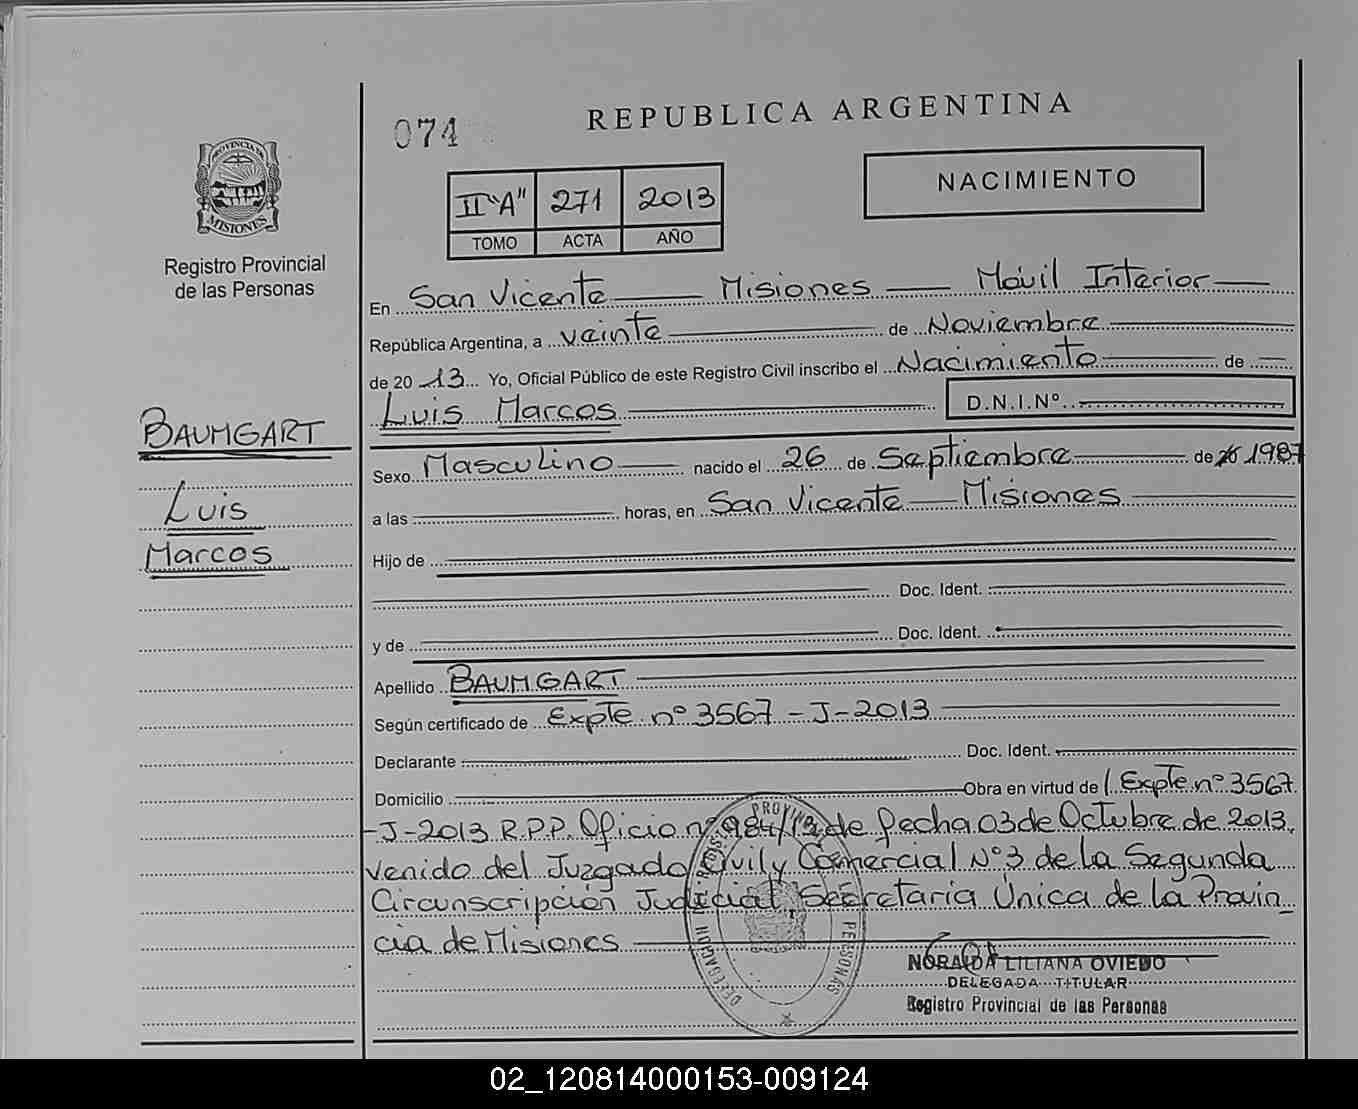 074
REPUBLICA ARGENTINA
PROVINCIA DE
MISIONES
Registro Provincial
de las Personas
II "A" 271 2013
TOMO ACTA AÑO
NACIMIENTO
En San Vicente Misiones Móvil Interior
República Argentina, a veinte de Noviembre
de 20 13 Yo, Oficial Público de este Registro Civil inscribo el Nacimiento de
Luis Marcos D.N.I.Nº
BAUMGART
Luis
Marcos
Sexo Masculino nacido el 26 de Septiembre de 1987
a las horas, en San Vicente Misiones
Hijo de
Doc. Ident.
y de Doc. Ident.
Apellido BAUMGART
Según certificado de Expte. nº 3567 - J - 2013
Declarante Doc. Ident.
Domicilio Obra en virtud de Expte. nº 3567
- J - 2013 R.P.P. Oficio nº 984/13 de fecha 03 de Octubre de 2013,
venido del Juzgado Civil y Comercial Nº 3 de la Segunda
Circunscripción Judicial, Secretaria Única de la Provin_
cia de Misiones
PERSONAS
NORAIDA LILIANA OVIEDO
DELEGADA TITULAR
Registro Provincial de las Personas
02_120814000153-009124